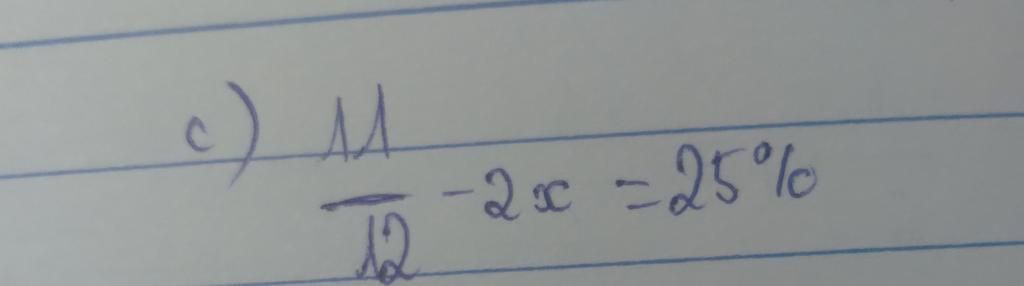 c) 11/12 - 2x = 25%